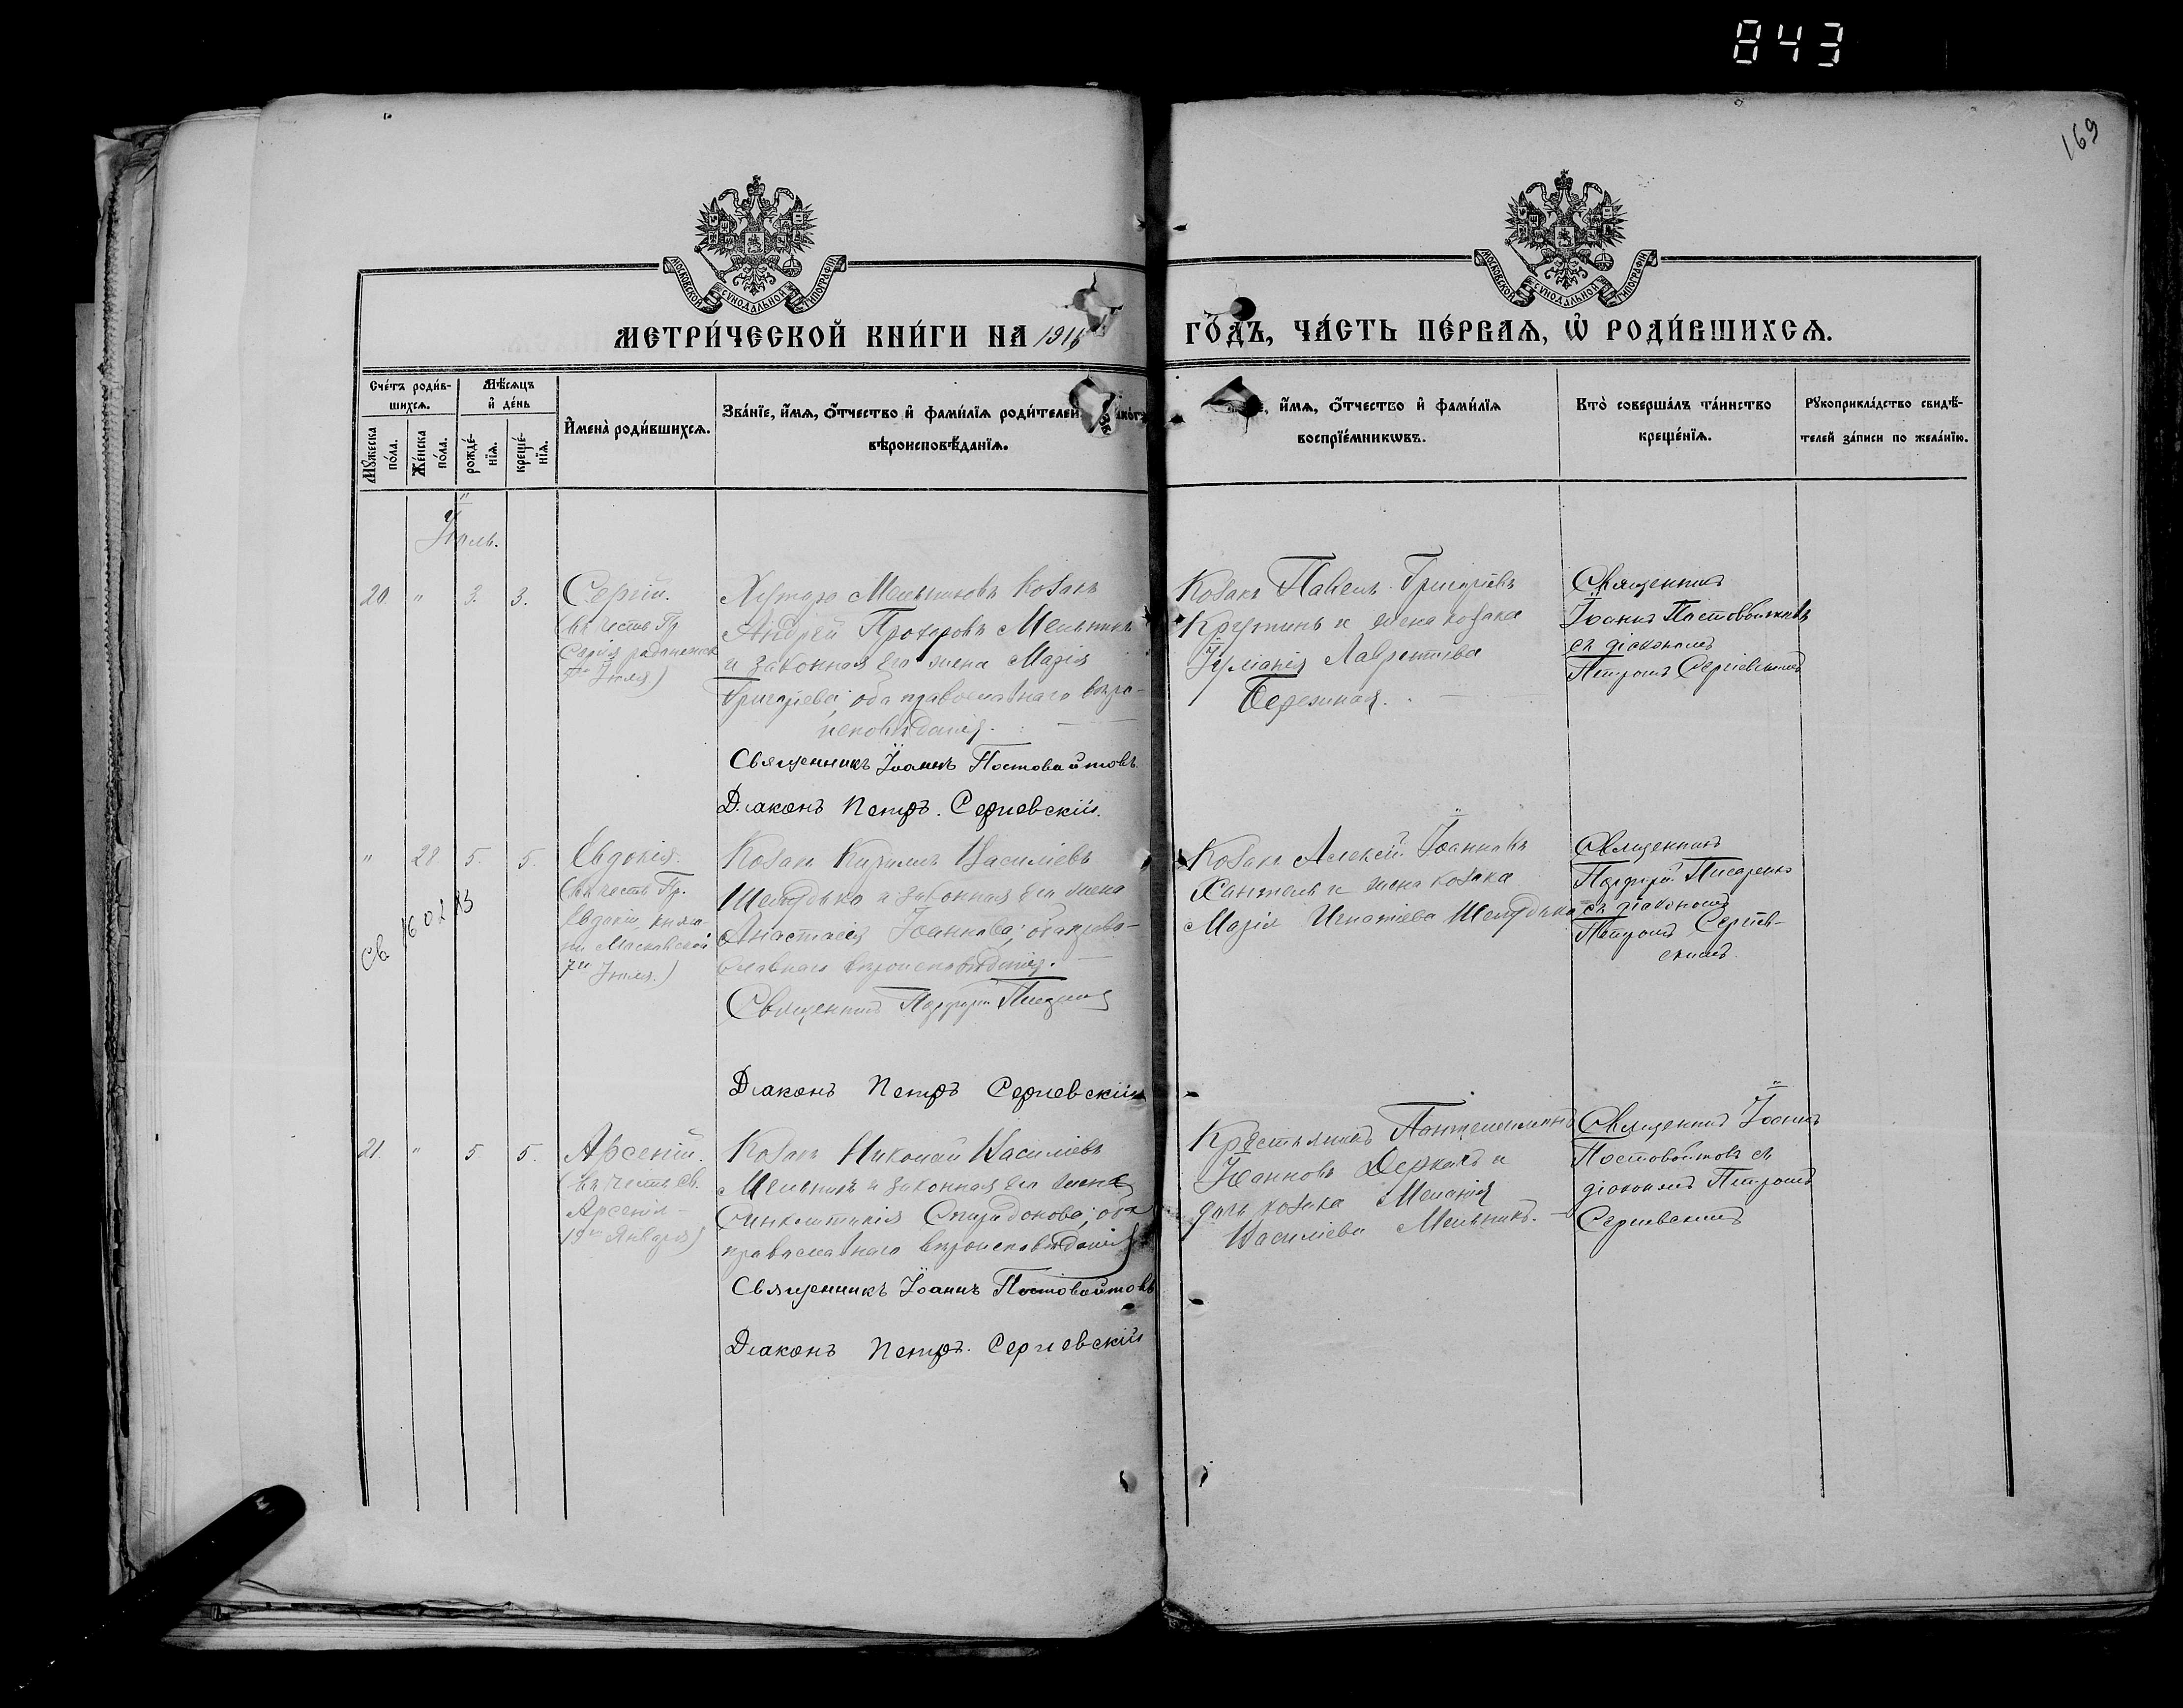 843
169
МОСКОВСКОЙ СѴНОДАЛЬНОЙ ТИПОГРАФІИ
МОСКОВСКОЙ СѴНОДАЛЬНОЙ ТИПОГРАФІИ
МЕТРИ́ЧЕСКОЙ КНИ́ГИ НА 1916
ГО́ДЪ, ЧА́СТЬ ПЕ́РВАѦ, Ѡ҆ РОДИ́ВШИХСѦ.
Сче́тъ роди́вшихсѧ.
Мꙋ́жеска по́ла.
Же́нска по́ла.
Мѣ́сѧцъ и҆ де́нь
рожде́нїѧ.
креще́нїѧ.
И҆мена̀ роди́вшихсѧ.
Зва́нїе, и҆́мѧ, ѻ҆́тчество и҆ фами́лїѧ роди́телей
вѣроисповѣ́данїѧ.
и҆́мѧ, ѻ҆́тчество и҆ фами́лїѧ
воспрїе́мникѡвъ.
Кто̀ соверша́лъ та́инство
креще́нїѧ.
Рꙋкоприкла́дство свидѣ́-
телей за́писи по жела́нїю.
Іюль.
20. " 3. 3.
Сергій.
(въ честь Пр.
Сергія радонежск
5го Іюля)
Хутора Мельниковъ Козакъ
Андрей Прохоровъ Мельникъ
и законная его жена Марія
Григоріева, оба православнаго веро-
исповѣданія.
Священникъ Іоаннъ Постовойтовъ.
Діаконъ Петръ. Сергіевскій.
Козакъ Павелъ Григоріевъ
и жена козака
Іуліанія Лаврентіева
Бережная.
Священникъ
Іоаннъ Постовойтовъ
съ діакономъ
Петромъ Сергіевскимъ
" 28 5. 5.
Св 16 02 83
Евдокія.
(въ честь Пр.
Евдокіи, княги-
ни Московской
7го Іюля.)
Козакъ Кириллъ Василіевъ
Шелудько и законная его жена
Анастасія Іоаннова, оба право-
славнаго вѣроисповѣданія.
Священникъ Порфирій Писаренко
Діаконъ Петръ Сергіевскій
Козакъ Алексій Іоанновъ
и жена козака
Марія Игнатіева Шелудько
Священникъ
Порфирій Писаренко
съ діакономъ
Петромъ Сергіев-
скимъ.
21. " 5. 5.
Арсеній.
(въ честь Св.
Арсенія –
19го Января)
Козакъ Николай Василіевъ
Мельникъ и законная его жена
Синклитикія Спиридонова, оба
православнаго вѣроисповѣданія
Священникъ Іоаннъ Постовойтовъ
Діаконъ Петръ. Сергіевскій
Крестьянинъ Пантелеимонъ
Іоанновъ Деркачъ и
дочь козака Меланія
Василіева Мельникъ.
Священникъ Іоаннъ
Постовойтовъ съ
діакономъ Петромъ
Сергіевскимъ